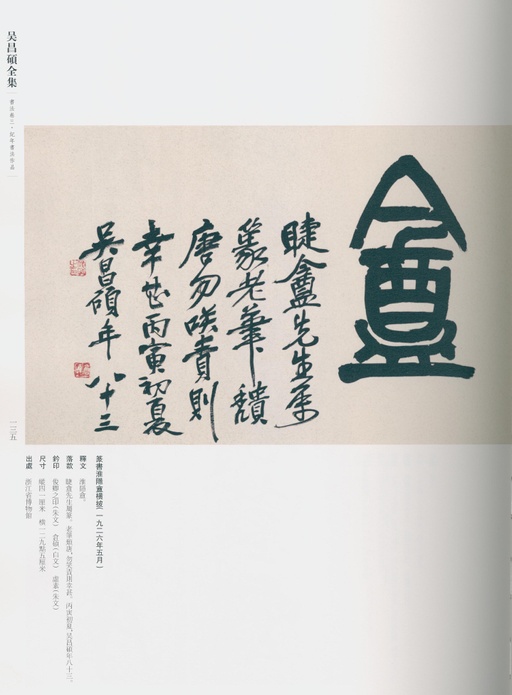 盦
睫盦先生属
篆老筆頽
唐勿咲責則
幸甚丙寅初夏
吴昌碩年八十三
吴昌碩全集
書法卷二·紀年書法作品
一三五
篆書淮隱盦橫披(一九二六年五月)
釋文 淮隱盦。
落款 睫盦先生屬篆。老筆頽唐,勿笑責則幸甚。丙寅初夏,吴昌碩年八十三。
鈐印 俊卿之印(朱文) 倉碩(白文) 虚素(朱文)
尺寸 縱四一厘米 橫一二九點五厘米
出處 浙江省博物館